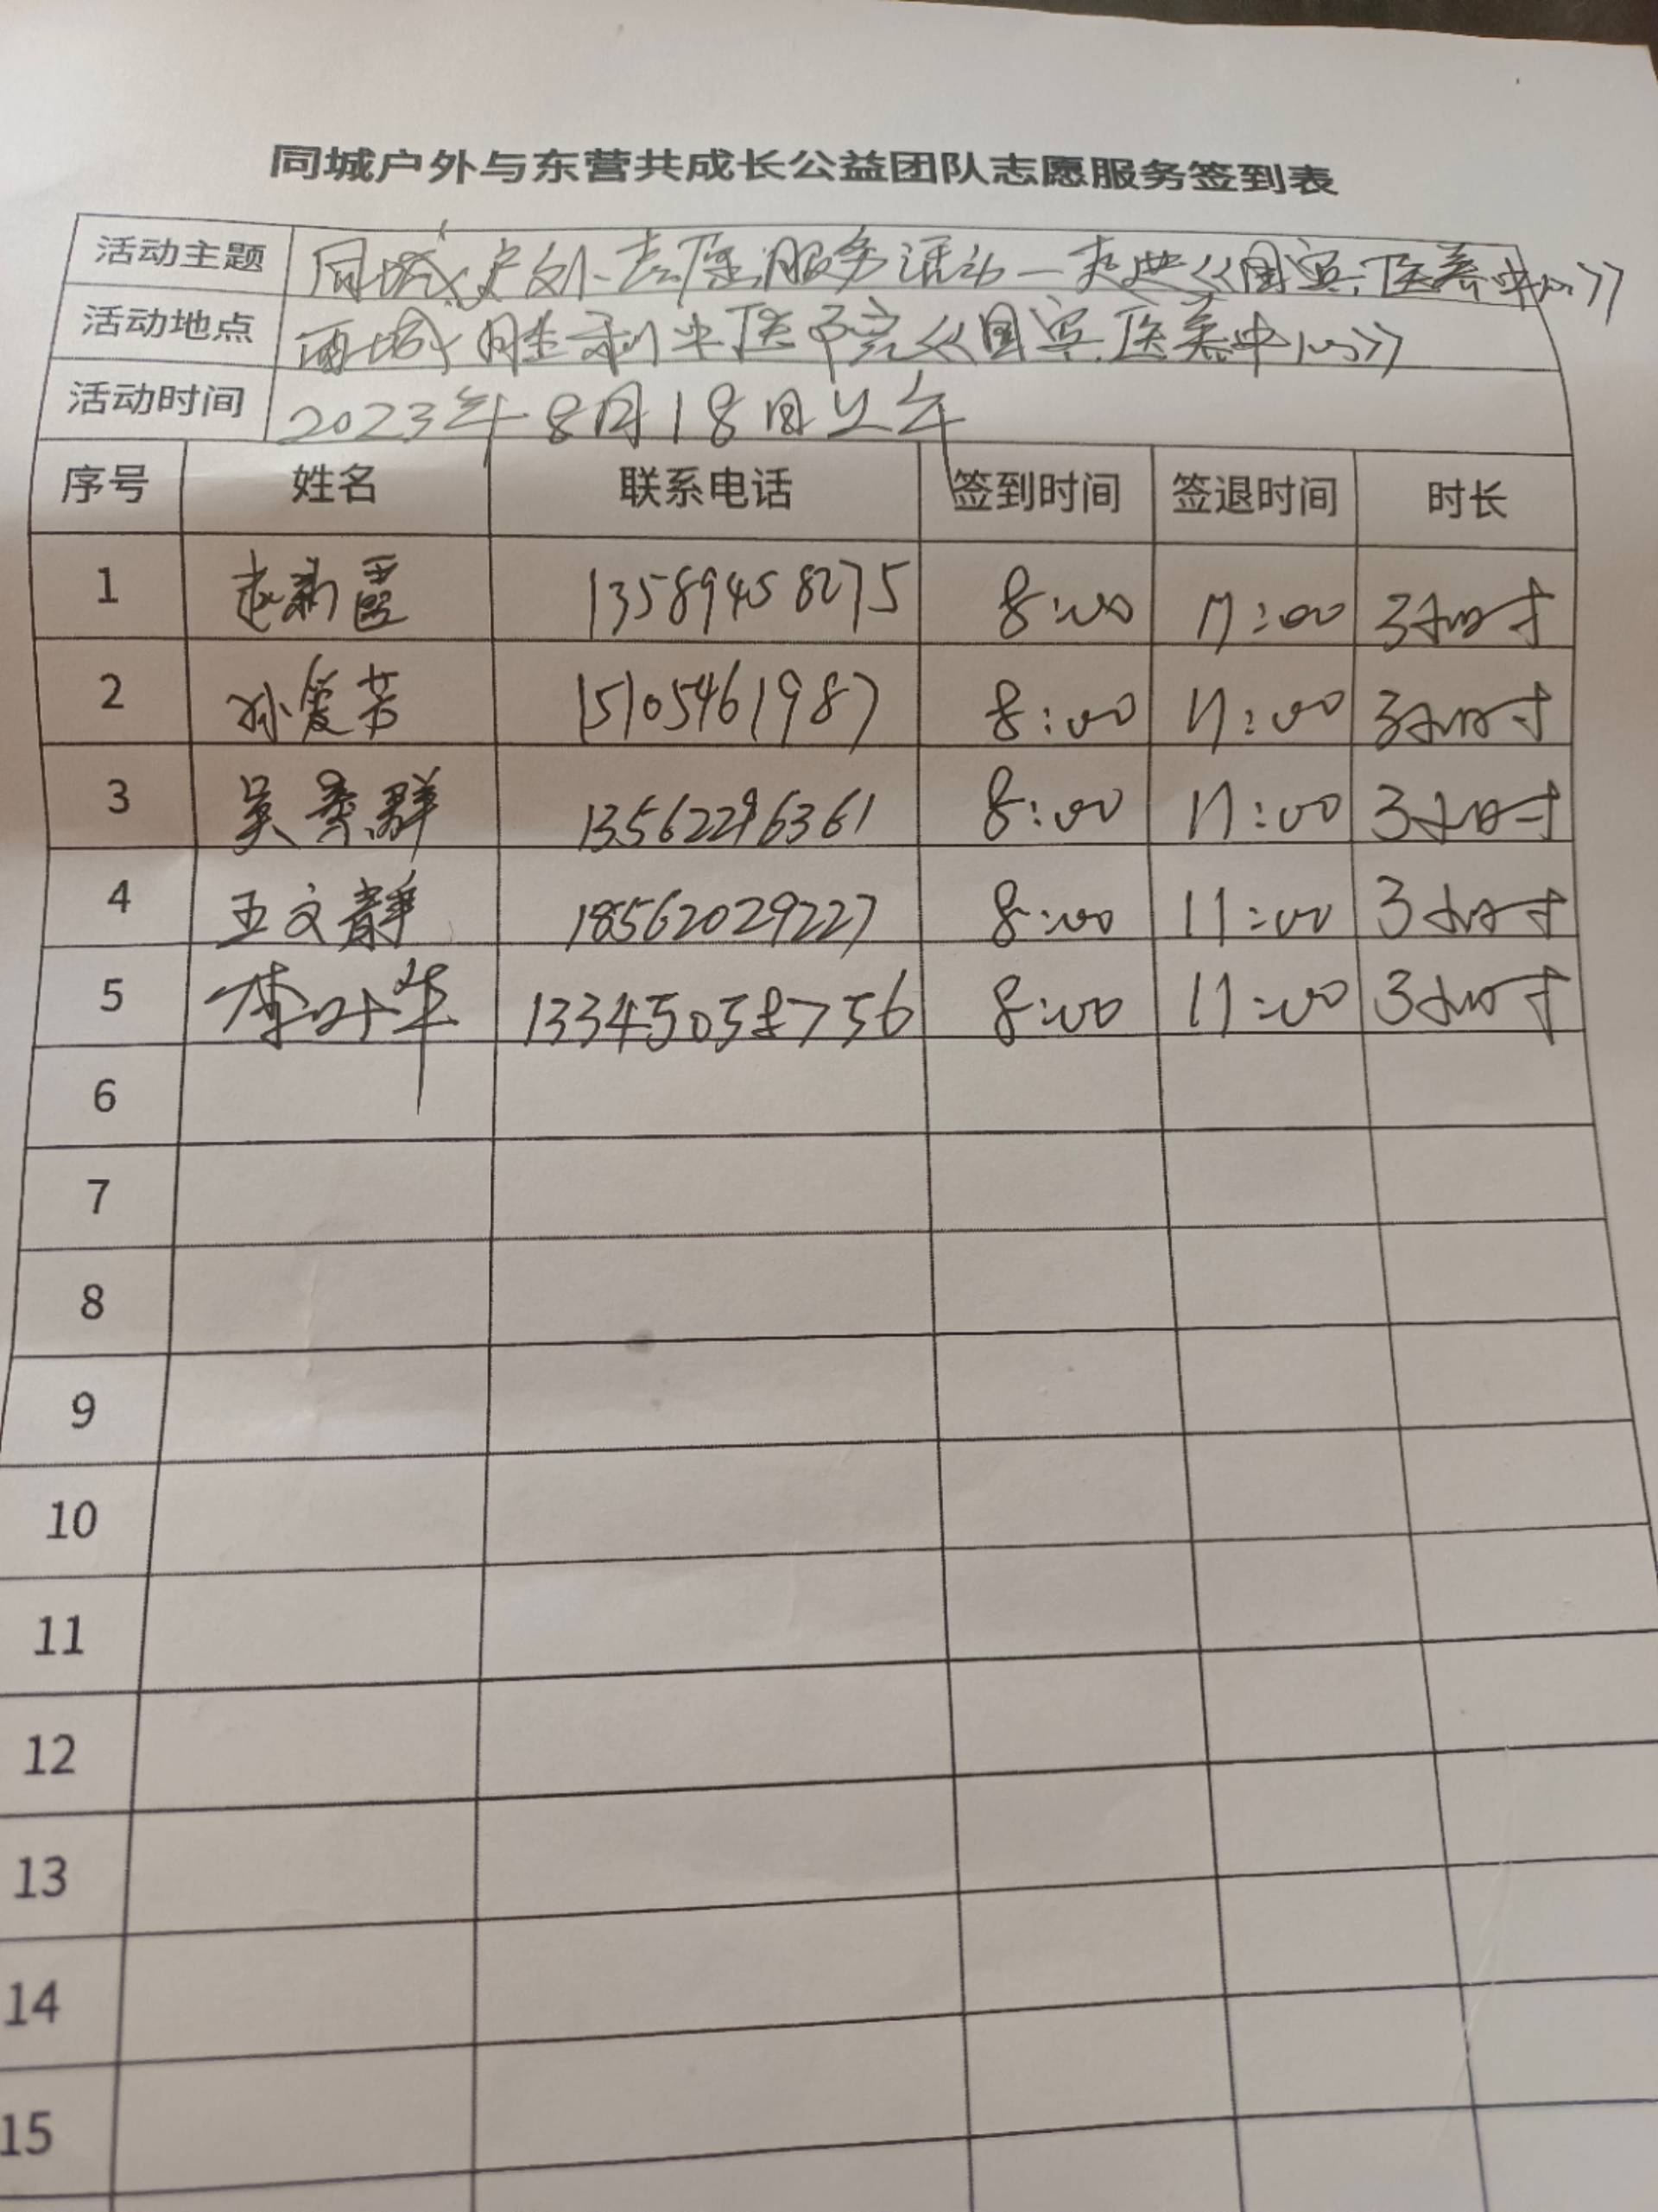 同城户外与东营共成长公益团队志愿服务签到表
活动主题 同城户外志愿服务活动—走进《国宾医养中心》
活动地点 西城胜利中医院《国宾医养中心》
活动时间 2023年8月18日上午
序号 姓名 联系电话 签到时间 签退时间 时长
1 赵新霞 13589458275 8:00 11:00 3小时
2 孙爱芳 15105461987 8:00 11:00 3小时
3 吴秀群 13562296361 8:00 11:00 3小时
4 王文静 18562029227 8:00 11:00 3小时
5 李叶华 13345058756 8:00 11:00 3小时
6
7
8
9
10
11
12
13
14
15